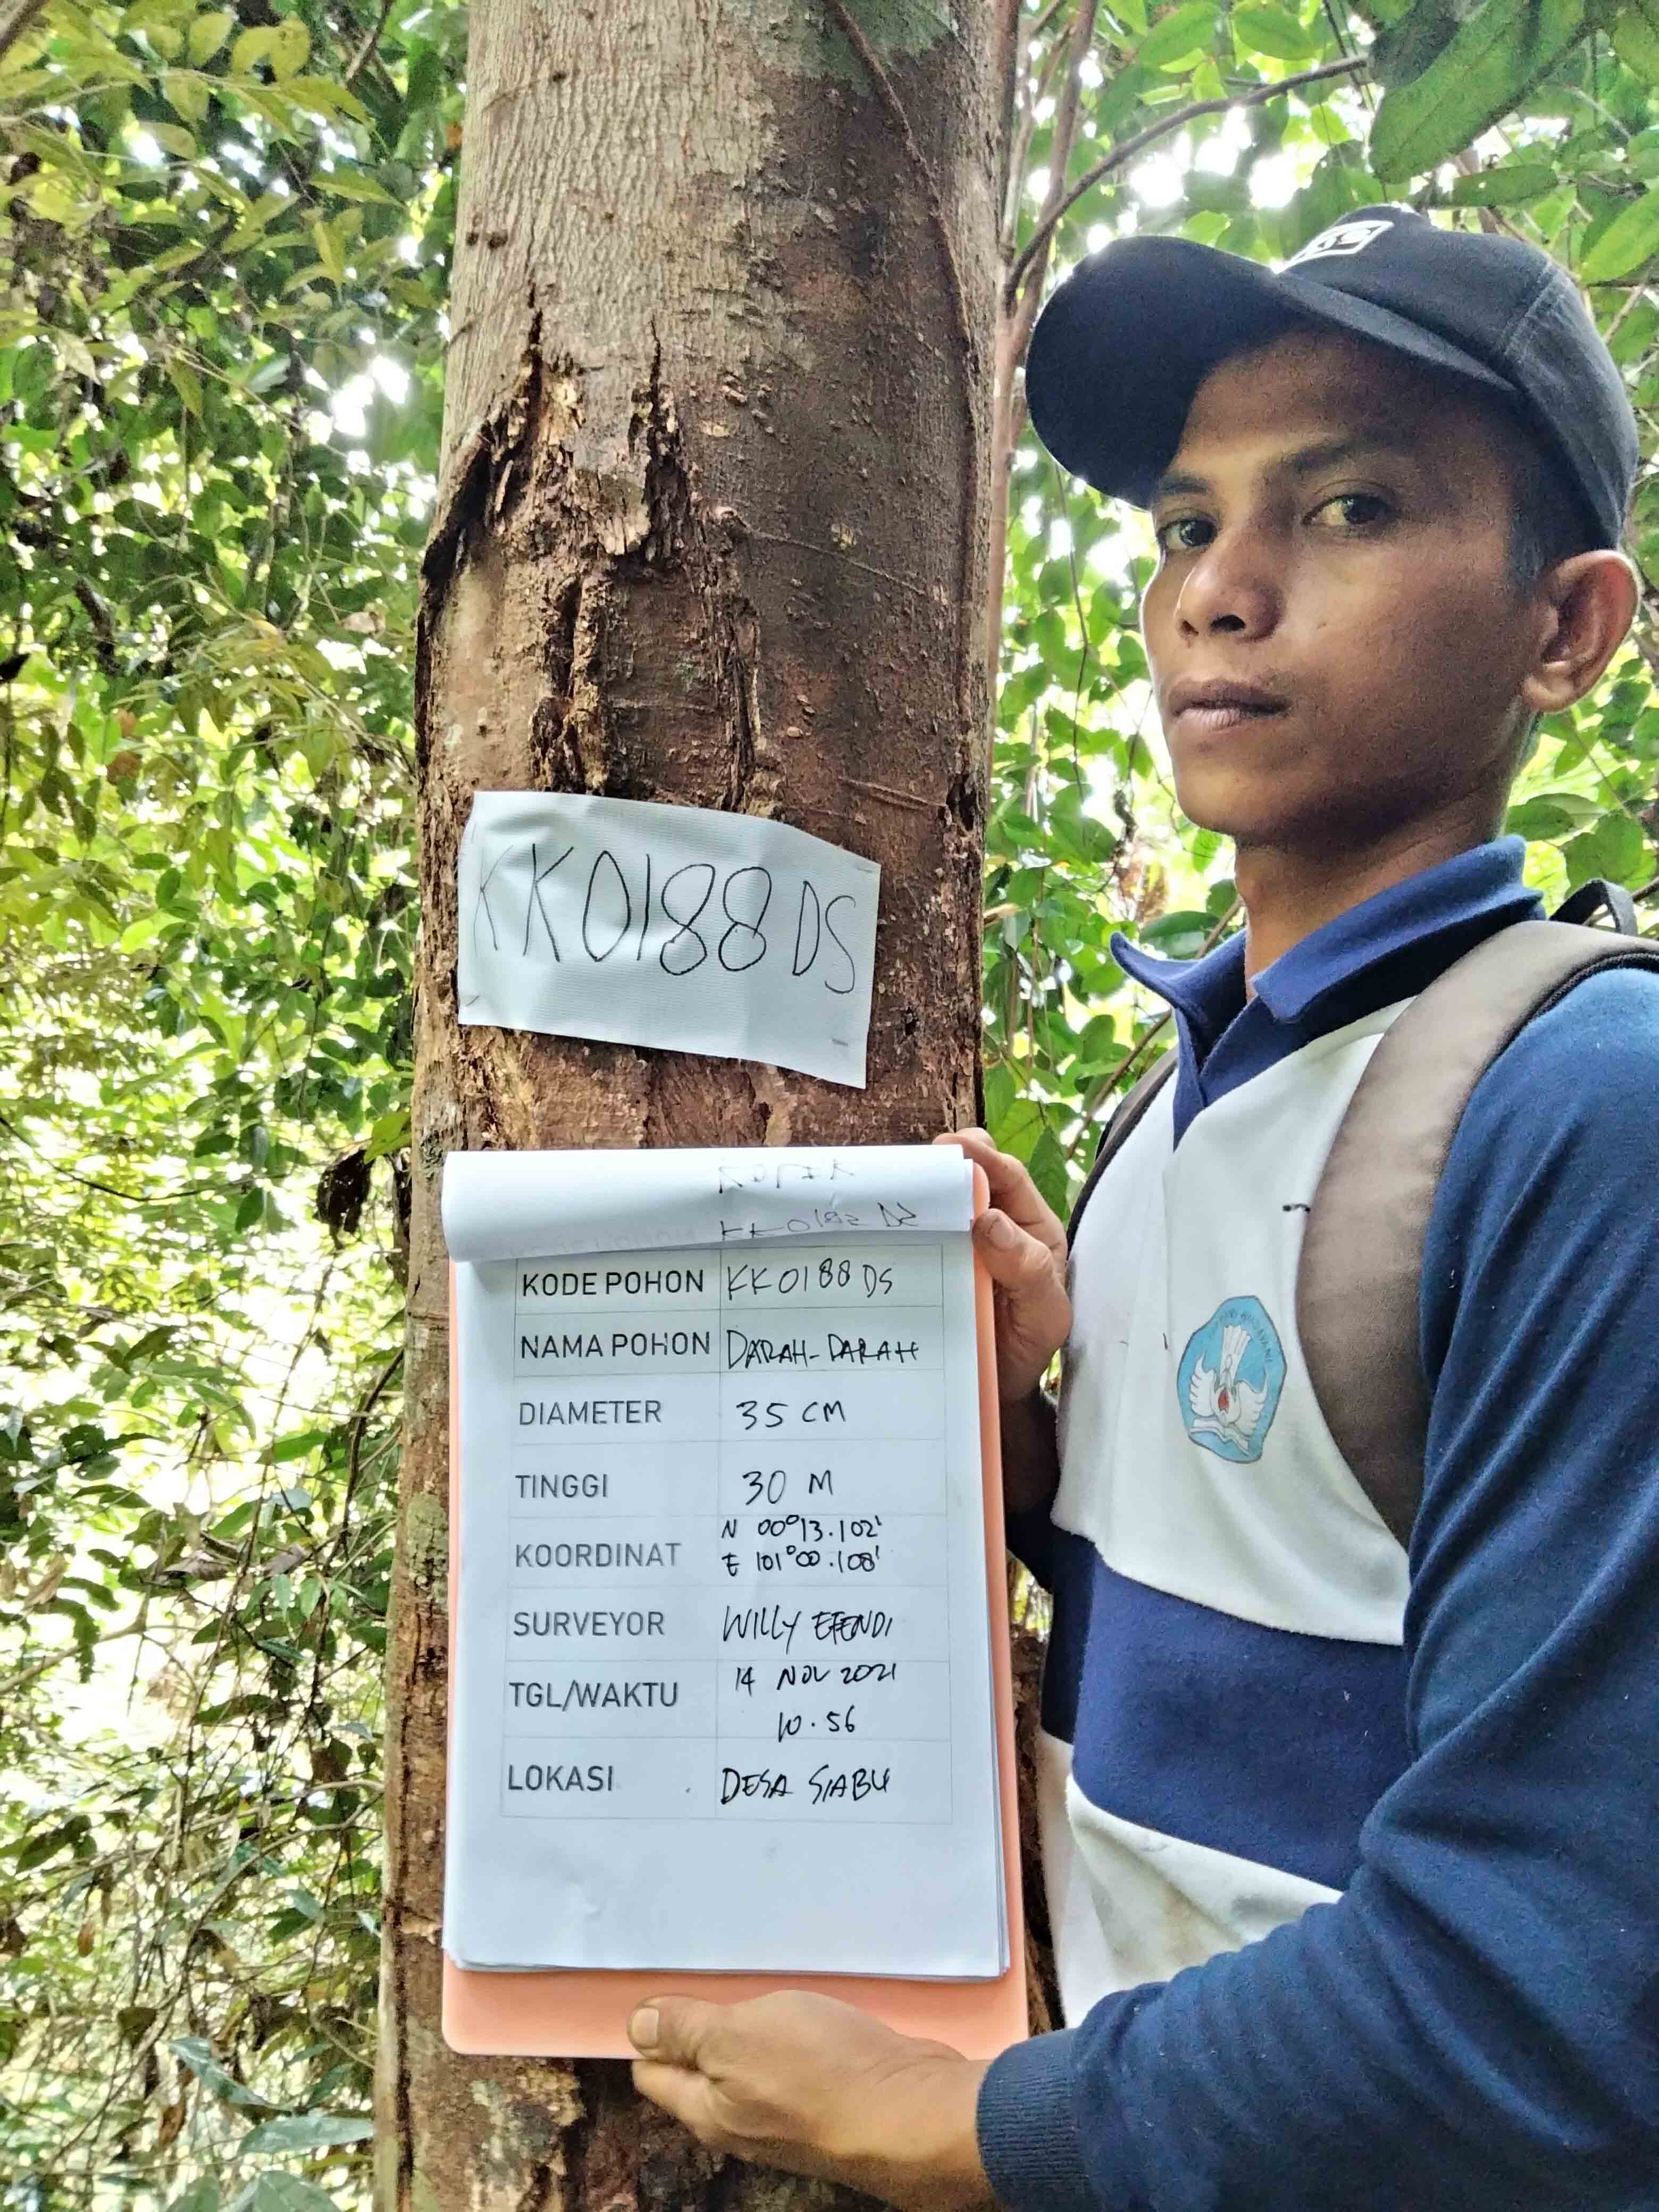 KK0188 DS
KODE POHON KK0188 DS
NAMA POHON DARAH-DARAH
DIAMETER 35 CM
TINGGI 30 M
KOORDINAT N 00°13.102'
E 101°00.108'
SURVEYOR WILLY EFENDI
TGL/WAKTU 14 NOV 2021
10.56
LOKASI DESA SIABU